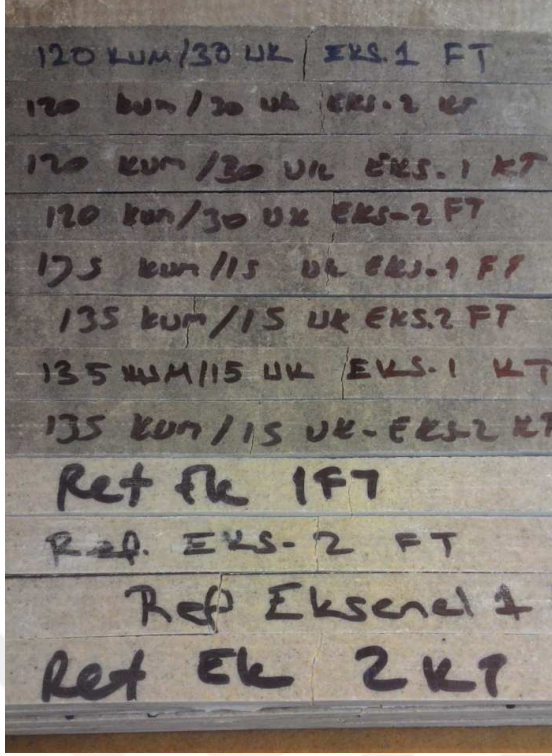 120 KUM/30 UK EKS.1 FT
120 kum/30 uk EKS.2 KT
120 KUM/30 UK EKS.1 KT
120 kum/30 UK EKS-2 FT
135 kum/15 UK EKS.1 FT
135 kum/15 UK EKS.2 FT
135 KUM/15 UK EKS.1 KT
135 KUM/15 UK-EKS-2 KT
Ref Ek 1FT
Ref. EKS-2 FT
Ref Eksenel 1
Ref Ek 2 KT